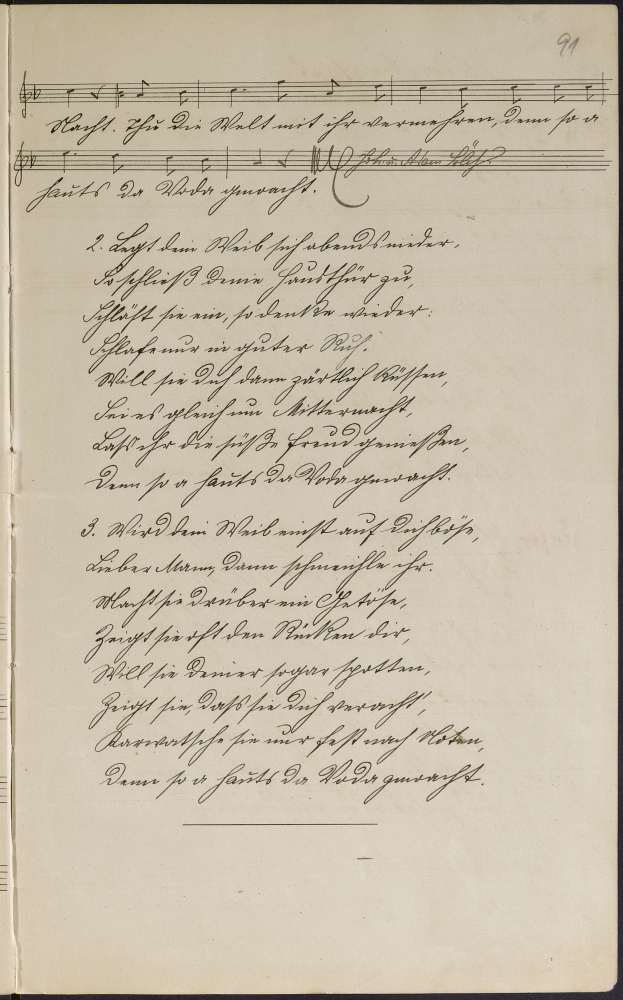 91
Nacht. Thu die Welt mit ihr vermehren, denn so a
hauts da Voda gmacht.
2. Legt dein Weib sich abends nieder,
So schließ deine Hausthür zu,
Schläft sie ein, so denke wieder:
Schlafe nur in guter Ruh.
Will sie dich dann zärtlich küssen,
Sei es gleich um Mitternacht,
Lass ihr die süße Freud genießen,
Denn so a hauts da Voda gmacht.
3. Wird dein Weib einst auf dich böse,
Lieber Mann, dann schmeichle ihr.
Macht sie drüber ein Getöse,
Zeigt sie oft den Rücken dir,
Will sie deiner sogar spotten,
Zeigt sie, dass sie dich veracht',
Karwatsche sie nur fest nach Noten,
Denn so a hauts da Voda gmacht.